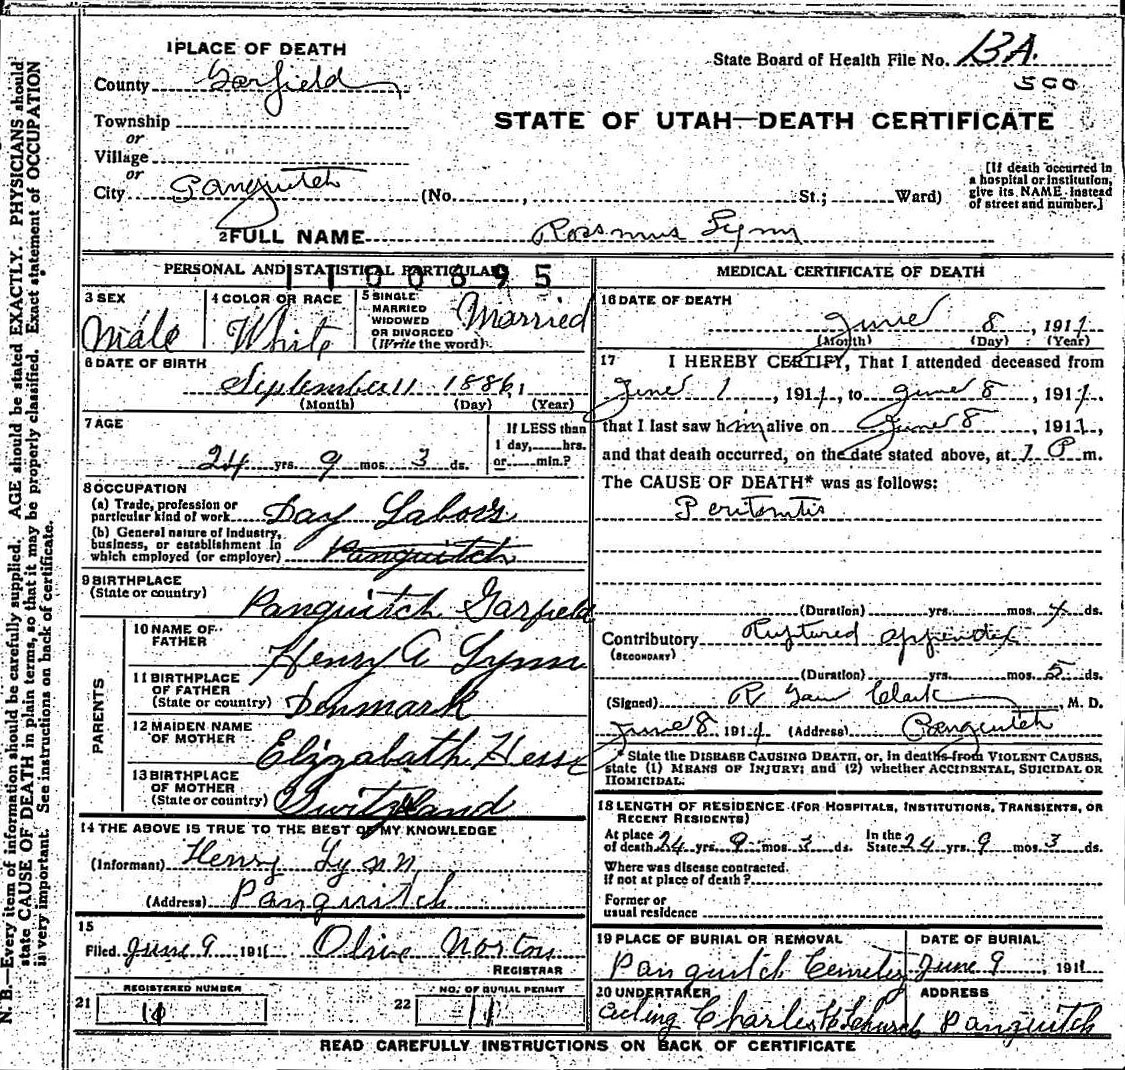 1 PLACE OF DEATH
County Garfield
Township
or
Village
or
City Panguitch (No. , St.; Ward)
State Board of Health File No. 13 A.
500
STATE OF UTAH—DEATH CERTIFICATE
[If death occurred in
a hospital or institution,
give its NAME instead
of street and number.]
2 FULL NAME Rossmus Lynn
PERSONAL AND STATISTICAL PARTICULARS
1100895
3 SEX
Male
4 COLOR OR RACE
White
5 SINGLE
MARRIED
WIDOWED
OR DIVORCED
(Write the word)
Married
6 DATE OF BIRTH
September 11 1886
(Month) (Day) (Year)
7 AGE
24 yrs. 9 mos. 3 ds.
If LESS than
1 day, hrs.
or min.?
8 OCCUPATION
(a) Trade, profession or
particular kind of work Day Labors
(b) General nature of industry,
business, or establishment in
which employed (or employer) Panguitch
9 BIRTHPLACE
(State or country)
Panguitch Garfield
PARENTS
10 NAME OF
FATHER
Henry A Lynn
11 BIRTHPLACE
OF FATHER
(State or country) Denmark
12 MAIDEN NAME
OF MOTHER
Elizabath Hess
13 BIRTHPLACE
OF MOTHER
(State or country) Switzland
14 THE ABOVE IS TRUE TO THE BEST OF MY KNOWLEDGE
(Informant) Henry Lynn
(Address) Panguitch
15
Filed June 9 1911 Olive Norton
REGISTRAR
21 REGISTERED NUMBER
22 NO. OF BURIAL PERMIT
11
MEDICAL CERTIFICATE OF DEATH
16 DATE OF DEATH
June 8, 1911
(Month) (Day) (Year)
17 I HEREBY CERTIFY, That I attended deceased from
June 1, 1911, to June 8, 1911.
that I last saw him alive on June 8 1911,
and that death occurred, on the date stated above, at 1 P m.
The CAUSE OF DEATH* was as follows:
Peritontis
(Duration) yrs. mos. ds.
Contributory Ruptured appendix
(SECONDARY)
(Duration) yrs. mos. 5 ds.
(Signed) R Clark, M. D.
June 8 1911 (Address) Panguitch
* State the DISEASE CAUSING DEATH, or, in deaths from VIOLENT CAUSES,
state (1) MEANS OF INJURY; and (2) whether ACCIDENTAL, SUICIDAL OR
HOMICIDAL.
18 LENGTH OF RESIDENCE (FOR HOSPITALS, INSTITUTIONS, TRANSIENTS, OR
RECENT RESIDENTS)
At place In the
of death 24 yrs. 9 mos. 3 ds. State 24 yrs. 9 mos. 3 ds.
Where was disease contracted.
if not at place of death?
Former or
usual residence
19 PLACE OF BURIAL OR REMOVAL DATE OF BURIAL
Panguitch Cemetery June 9, 1911
20 UNDERTAKER ADDRESS
acting Charles H Church Panguitch
READ CAREFULLY INSTRUCTIONS ON BACK OF CERTIFICATE
N. B.—Every item of information should be carefully supplied. AGE should be stated EXACTLY. PHYSICIANS should
state CAUSE OF DEATH in plain terms, so that it may be properly classified. Exact statement of OCCUPATION
is very important. See instructions on back of certificate.